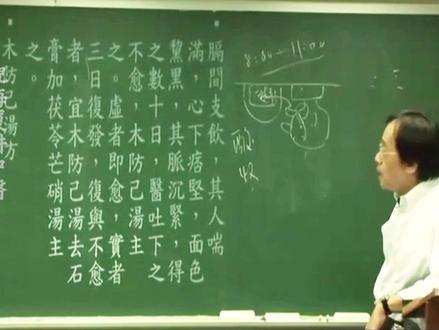 8:30 — 11:00
膈間支飲，其人喘
滿，心下痞堅，面色
黧黑，其脈沉緊，得
之數十日，醫吐下之
不愈，木防己湯主
之。虛者即愈，實者
三日復發，復與不愈
者，宜木防己湯去石
膏加茯苓芒硝湯主
之。
木防己湯方